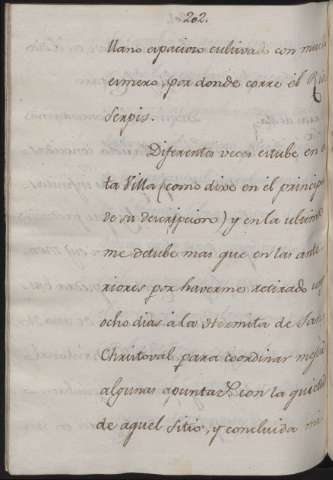 202.
llano espacioso cultivado con mucho
esmero, por donde corre el Rio
Serpis.
Diferentes veces estube en es
ta Villa (como dixe en el principio
de su descripcion) y en la ultima
me detube mas que en las ante
riores por haverme retirado
ocho dias à la Hermita de San
Christoval para coordinar mejor
algunas apuntac.s con la quietud
de aquel sitio, y concluida mi